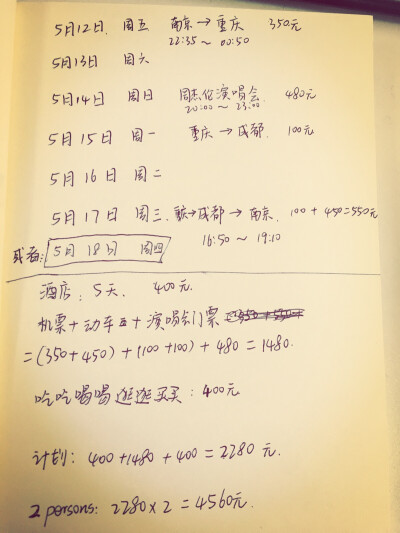 5月12日, 周五 南京→重庆 350元
22:35～00:50
5月13日 周六
5月14日 周日 周杰伦演唱会, 480元
20:00～23:00
5月15日 周一 重庆→成都, 100元
5月16日 周二
5月17日 周三, 重庆→成都→南京, 100+450=550元
16:50～19:10
或者: 5月18日 周四
酒店: 5天, 400元
机票+动车+演唱会门票
=(350+450)+(100+100)+480=1480.
吃吃喝喝逛逛买买: 400元
计划: 400+1480+400=2280元.
2 persons: 2280×2=4560元.